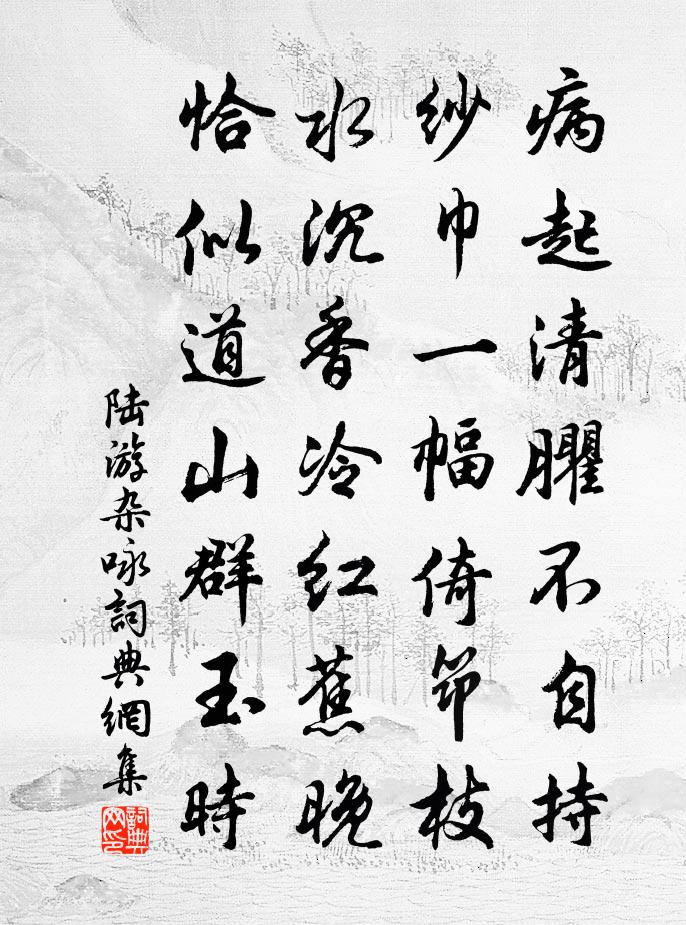 病起清臞不自持
纱巾一幅倚筇枝
水沉香冷红蕉晚
恰似道山群玉时
陆游杂咏詞典網集
詞典网印